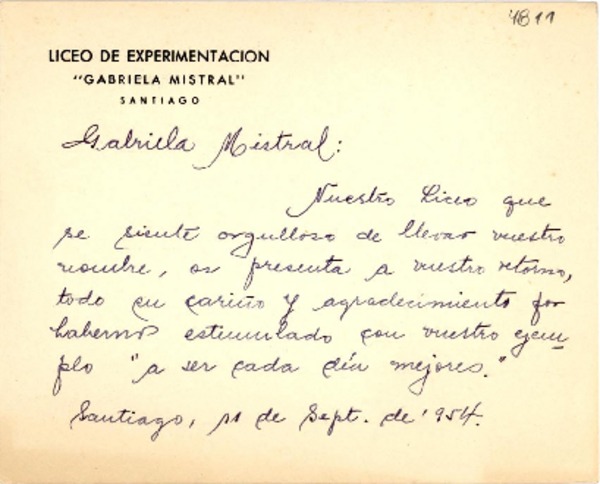 4811
LICEO DE EXPERIMENTACION
"GABRIELA MISTRAL"
SANTIAGO
Gabriela Mistral:
Nuestro Liceo que
se siente orgulloso de llevar vuestro
nombre, os presenta a vuestro retorno,
todo su cariño y agradecimiento por
habernos estimulado con vuestro ejem-
plo "a ser cada día mejores."
Santiago, 11 de Sept. de '954.